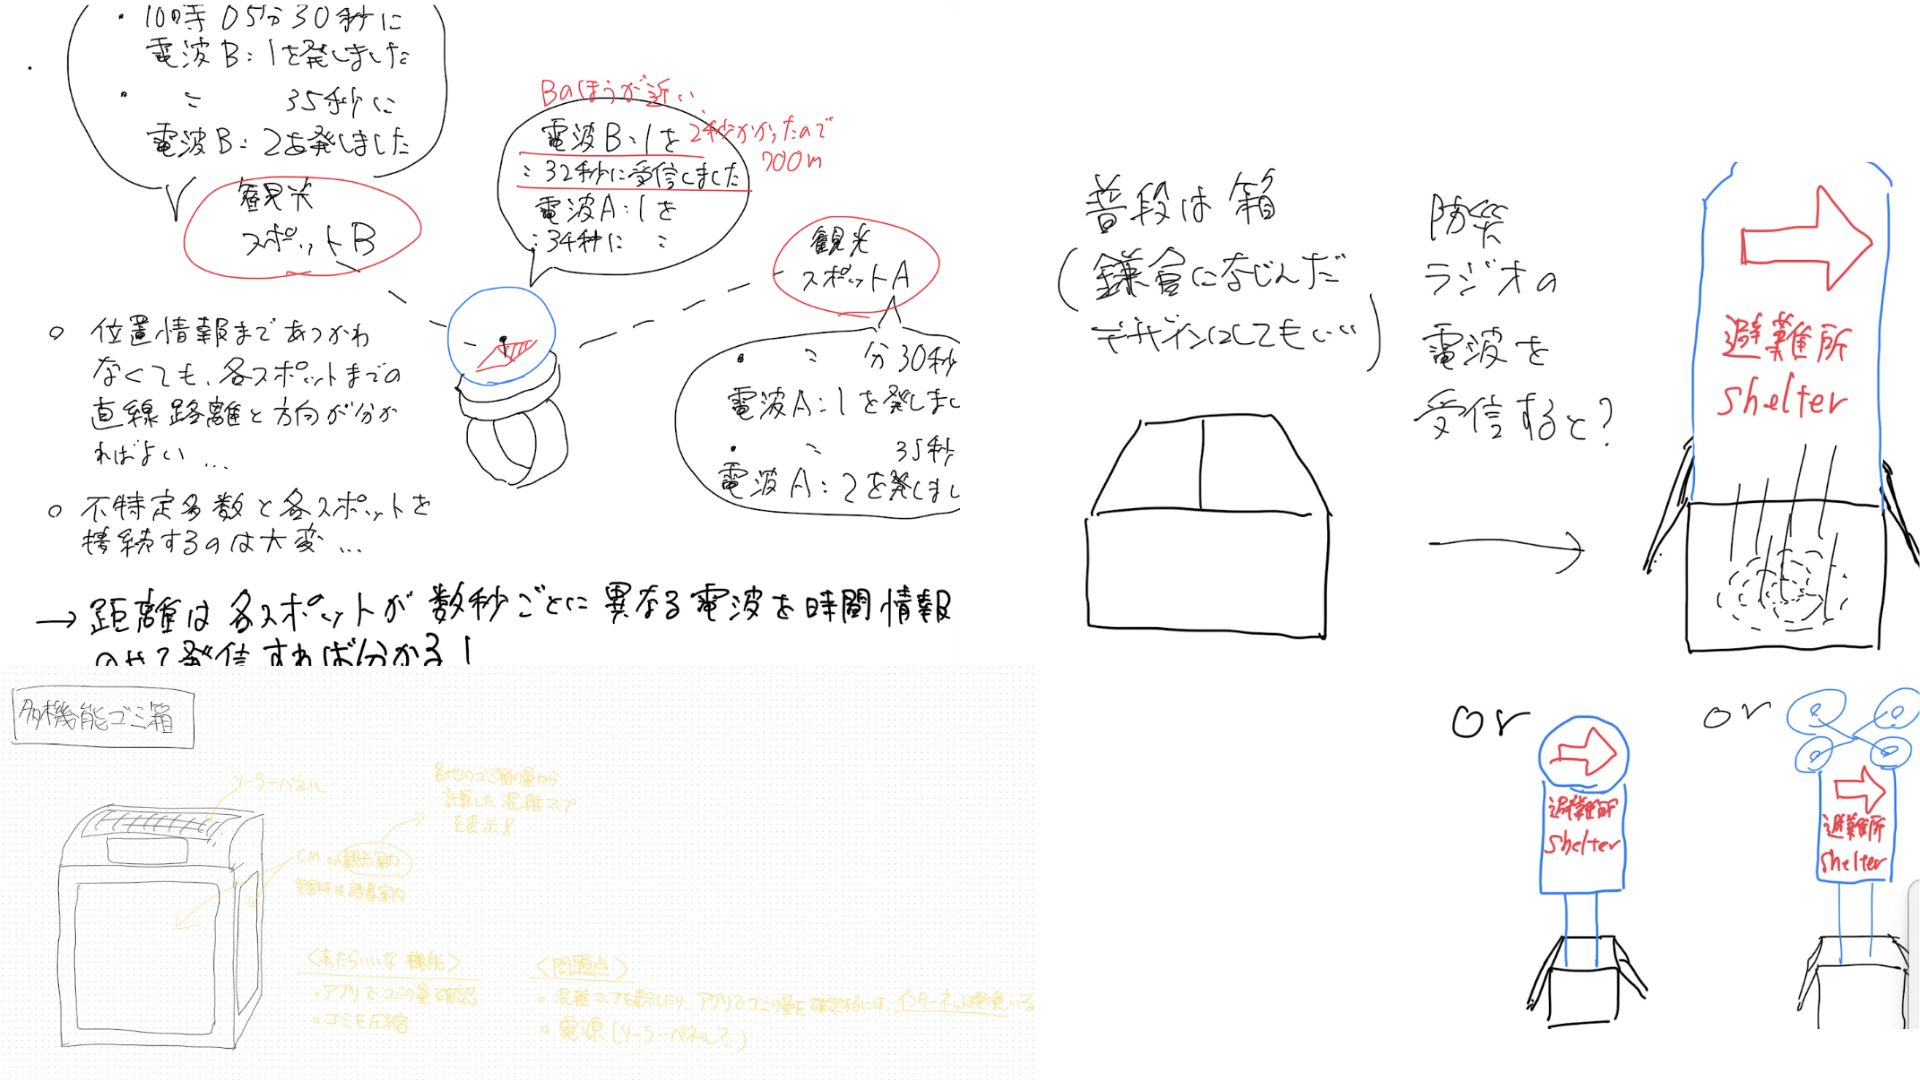 ・10時05分30秒に
電波B:1を発しました
・ 〃 35秒に
電波B:2を発しました
観光
スポットB
Bのほうが近い
電波B:1を
:32秒に受信しました
電波A:1を
:34秒に 〃
2秒かかったので
700m
観光
スポットA
・ 〃 分30秒
電波A:1を発しまし
・ 〃 35秒
電波A:2を発しまし
○ 位置情報まであつかわ
なくても、各スポットまでの
直線距離と方向が分か
ればよい…
○ 不特定多数と各スポットを
接続するのは大変…
→ 距離は各スポットが数秒ごとに異なる電波を時間情報
のせて発信すれば分かる!
普段は箱
(鎌倉になじんだ
デザインにしてもいい)
防災
ラジオの
電波を
受信すると?
避難所
shelter
or
避難所
shelter
or
避難所
shelter
多機能ゴミ箱
ソーラーパネル
各地のゴミ箱の量から
計算した混雑マップ
を表示!
CM or 観光案内
災害時は誘導案内
<あったらいいな機能>
・アプリでゴミの量確認
・ゴミを圧縮
<問題点>
○ 混雑マップを表示したり、アプリでゴミの量を確認するには、インターネット環境いる
○ 電源(ソーラーパネルで?)